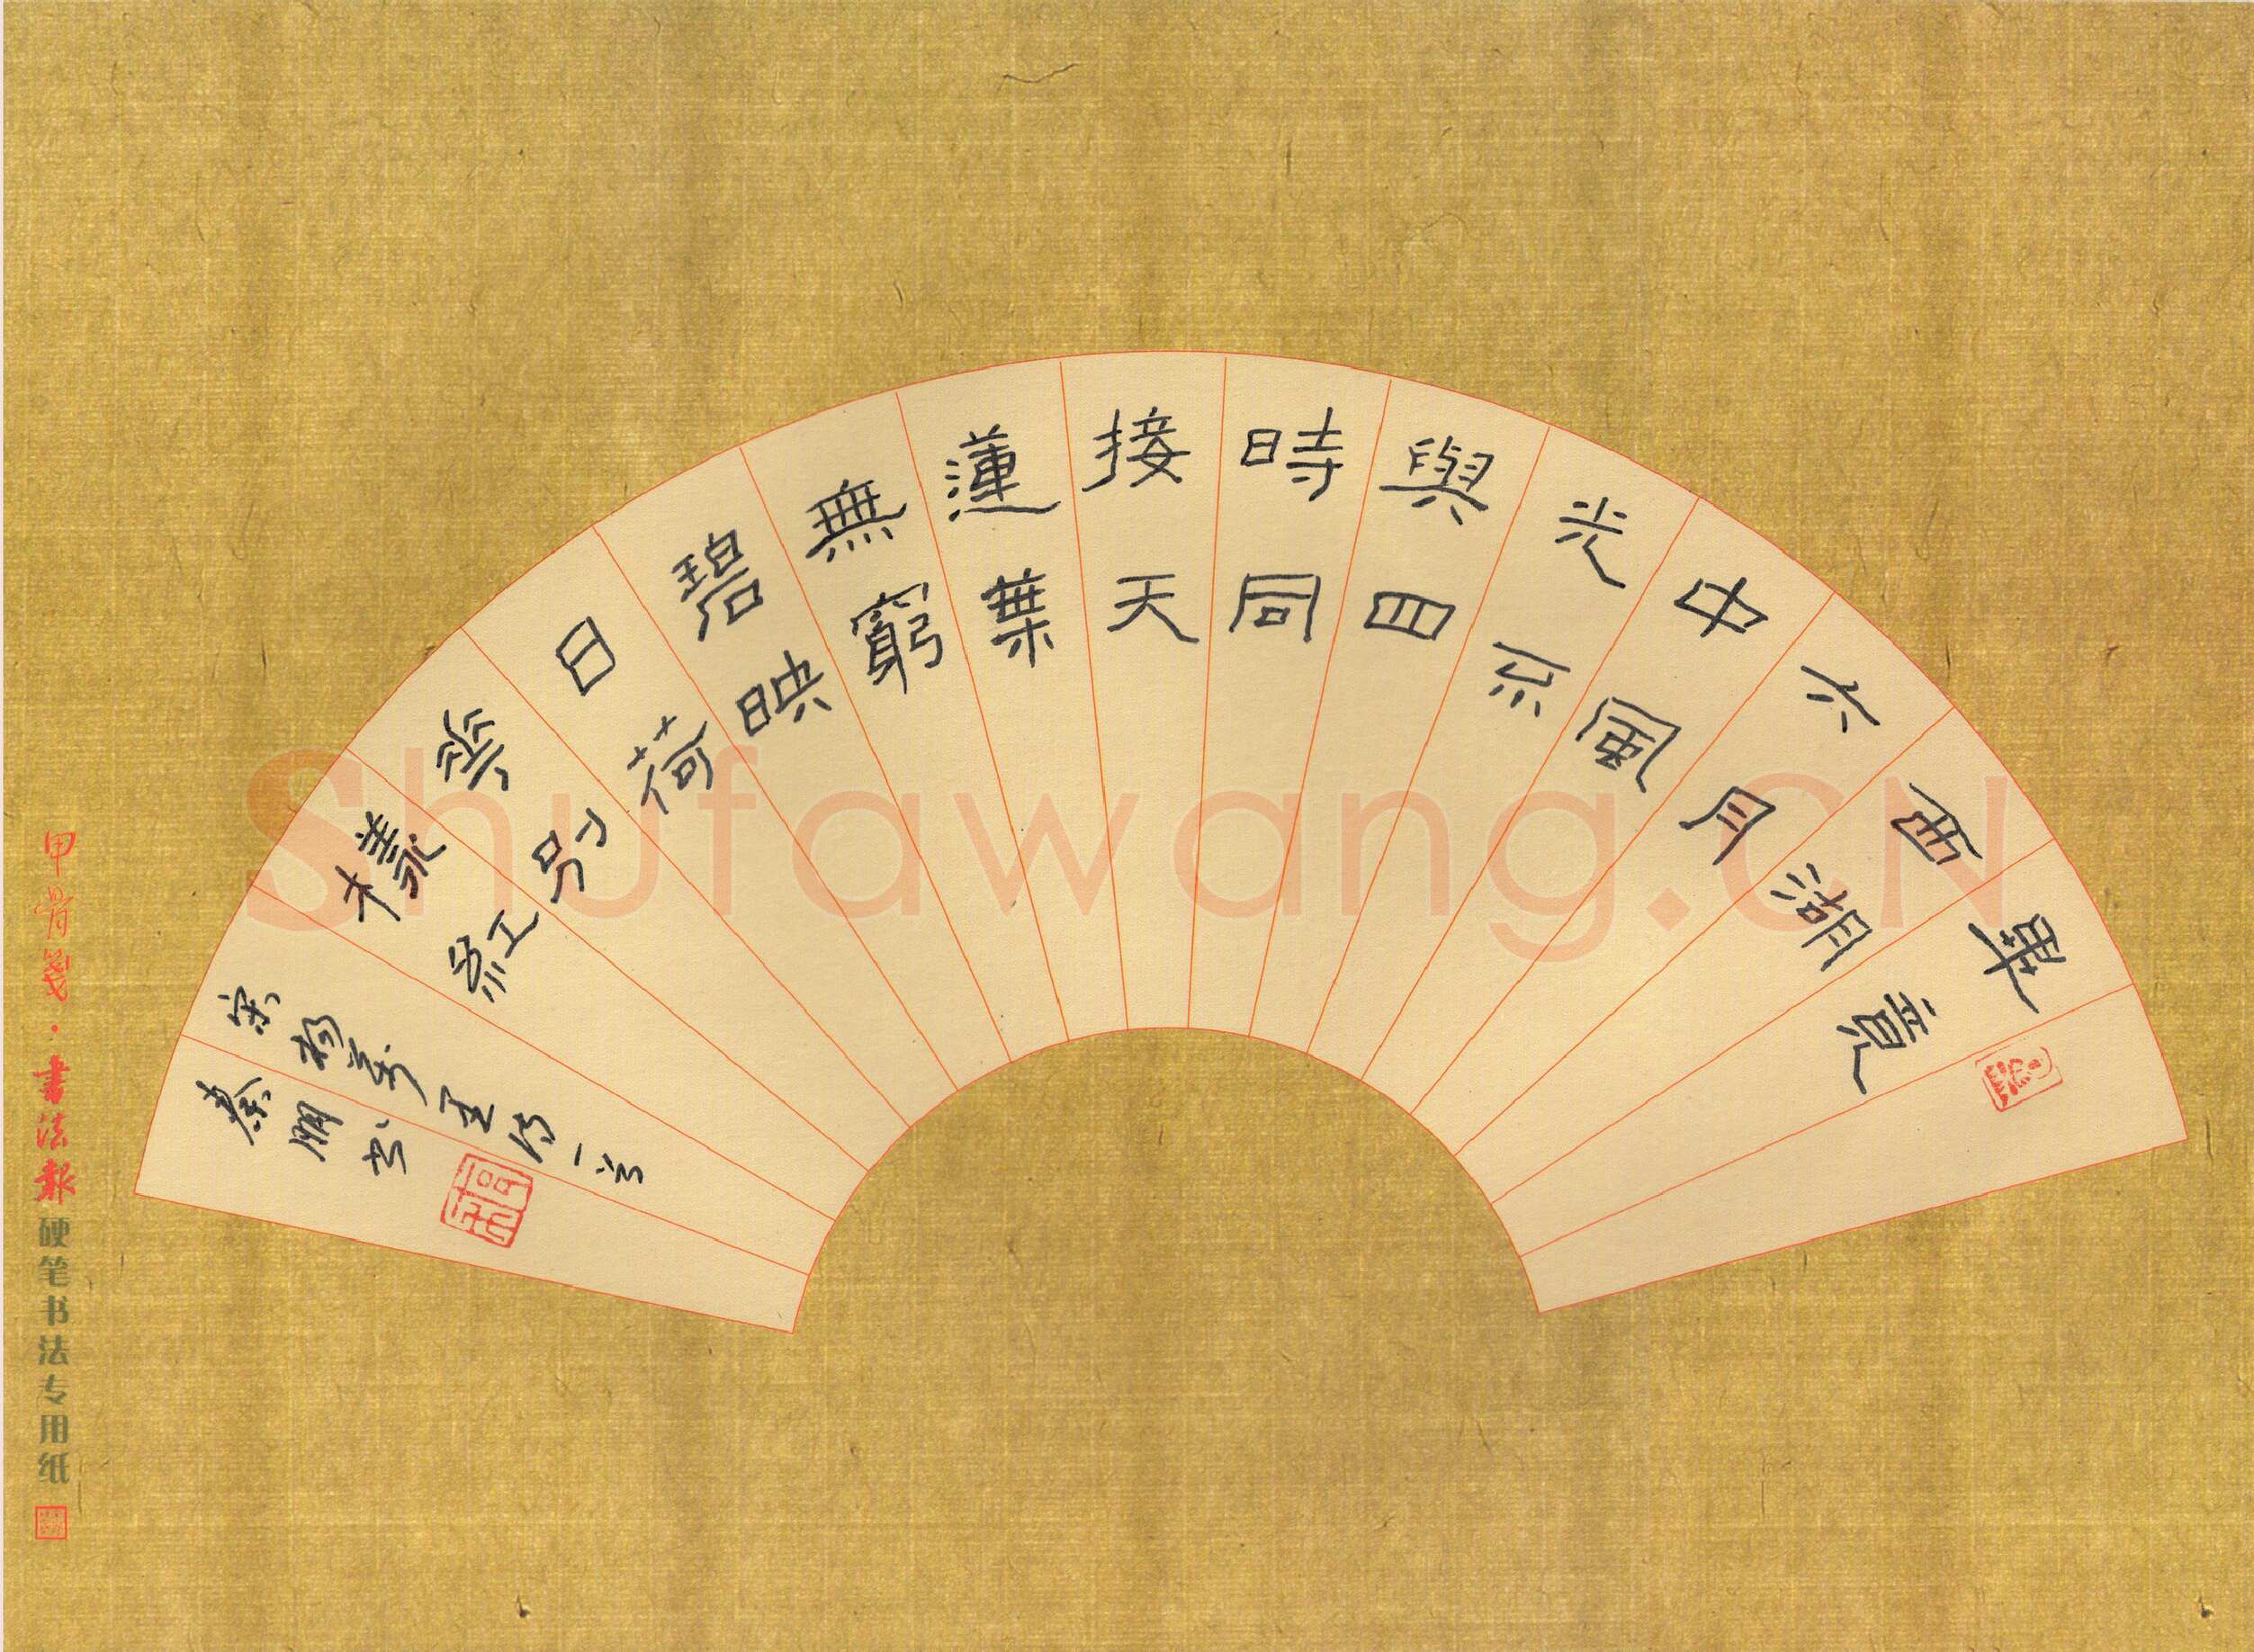 畢竟
西湖
六月
中風
光不
與四
時同
接天
蓮葉
無窮
碧映
日荷
花別
樣紅
宋楊萬里詩一首
秦朋书
甲骨笺·書法報硬笔书法专用纸
Shufawang.CN